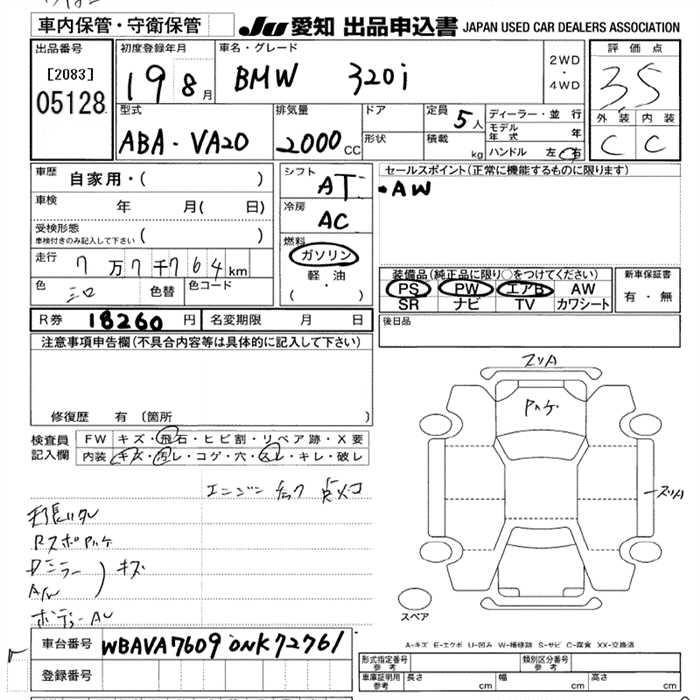 車内保管・守衛保管
JU 愛知 出品申込書 JAPAN USED CAR DEALERS ASSOCIATION
出品番号
[2083]
05128
初度登録年月
19 8月
車名・グレード
BMW 320i
2WD
・
4WD
評価点
3.5
外装 内装
C C
型式
ABA-VA20
排気量
2000cc
ドア
形状
定員 5人
積載 kg
ディーラー・並行
モデル年式 年
ハンドル 左・右
車歴 自家用・( )
車検 年 月( 日)
受検形態
車検付きのみ記入して下さい ( )
走行 7万7千764km
色 シロ 色替 色コード
シフト AT
冷房 AC
燃料
ガソリン
軽油
( ・ )
セールスポイント(正常に機能するものに限ります)
・AW
装備品(純正品に限り○をつけてください)
PS PW エアB AW
SR ナビ TV カワシート
新車保証書
有・無
R券 18260円 名変期限 月 日
後日品
注意事項申告欄(不具合内容等は具体的に記入して下さい)
修復歴 有 (箇所 )
検査員記入欄
FW キズ・飛石・ヒビ割・リペア跡・X要
内装 キズ・汚レ・コゲ・穴・スレ・キレ・破レ
エンジン チェック 点灯
Dミラー キズ
A/W
スリA
スリA
スペア
A-キズ E-エクボ U-凹み W-補修跡 S-サビ C-腐食 XX-交換済
車台番号 WBAVA76090NK72761
登録番号
形式指定番号 参考
類別区分番号 参考
車庫証明用 参考
長さ cm 幅 cm 高さ cm